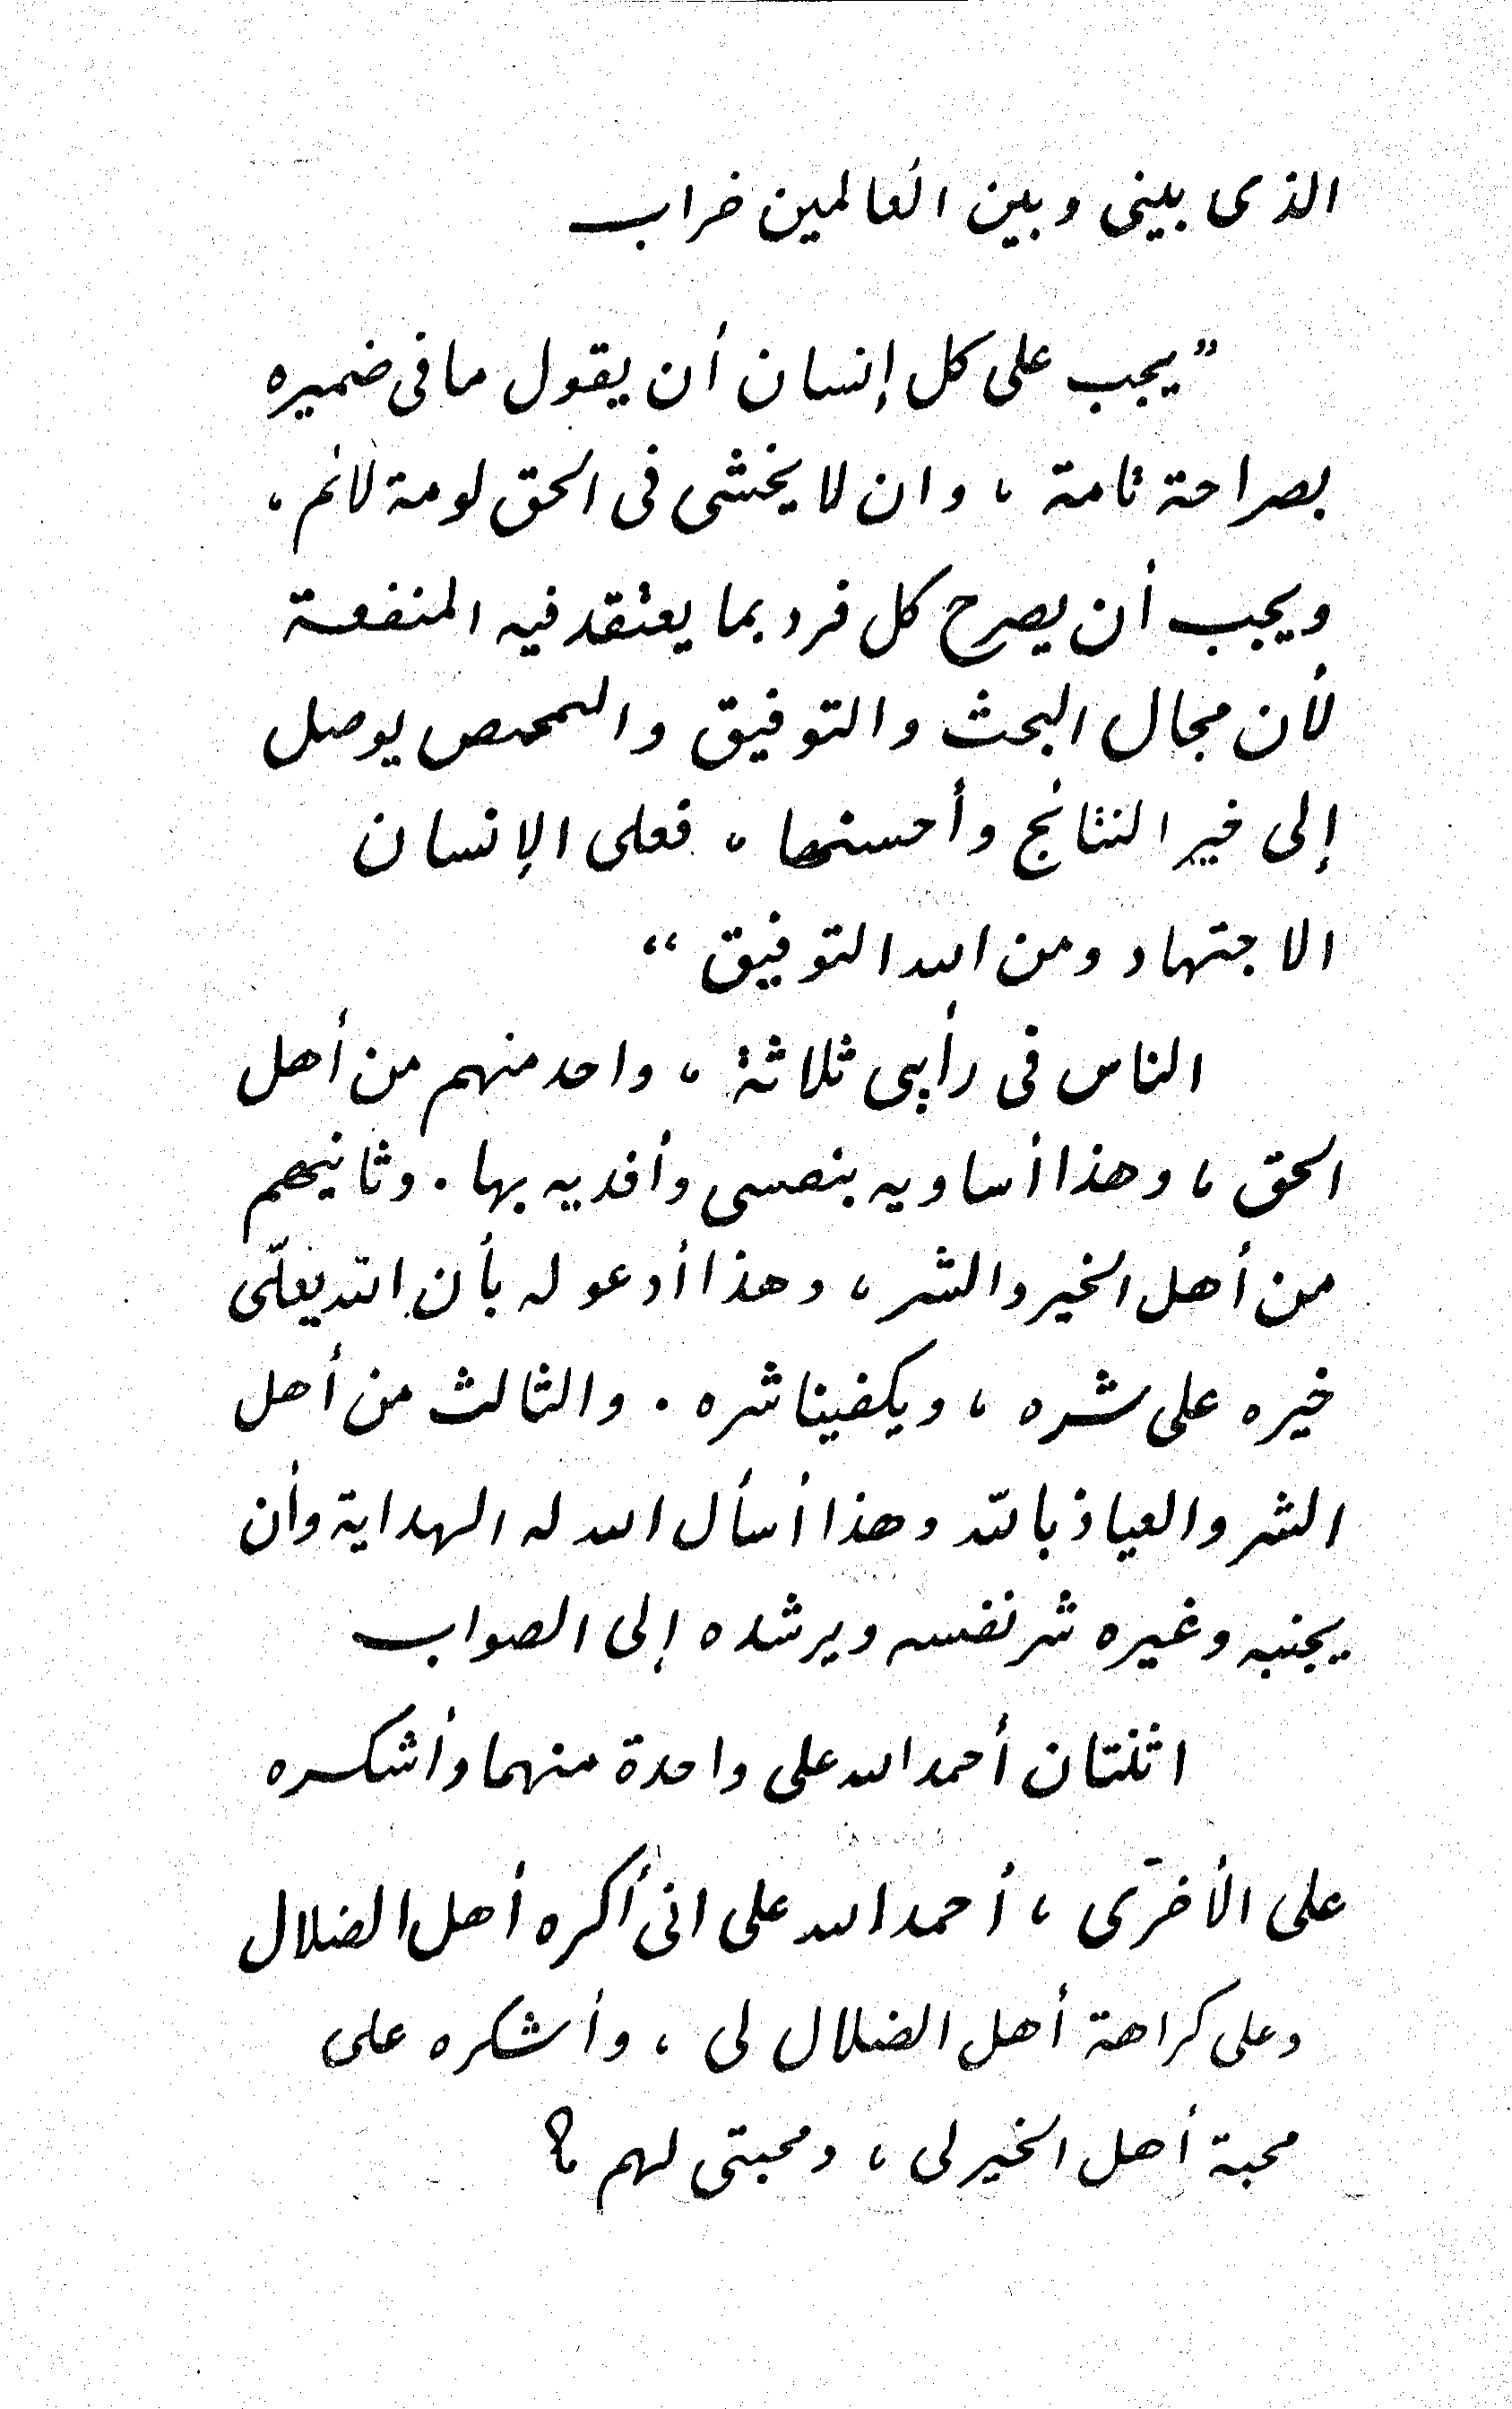 الذى بينى وبين العالمين خراب
"يجب على كل إنسان أن يقول ما فى ضميره
بصراحة تامة ، وان لا يخشى فى الحق لومة لائم ،
ويجب أن يصرح كل فرد بما يعتقد فيه المنفعة
لأن مجال البحث والتوفيق والتمحص يوصل
إلى خير النتائج وأحسنها ، فعلى الإنسان
الاجتهاد ومن الله التوفيق "
الناس فى رأيى ثلاثة ، واحد منهم من أهل
الحق ، وهذا أساويه بنفسى وأفديه بها . وثانيهم
من أهل الخير والشر ، وهذا أدعو له بأن الله يعلّى
خيره على شره ، ويكفينا شره . والثالث من أهل
الشر والعياذ بالله وهذا أسأل الله له الهداية وأن
يجنبه وغيره شر نفسه ويرشده إلى الصواب
اثنتان أحمد الله على واحدة منهما وأشكره
على الأخرى ، أحمد الله على انى أكره أهل الضلال
وعلى كراهة أهل الضلال لى ، وأشكره على
محبة أهل الخير لى ، ومحبتى لهم ؟